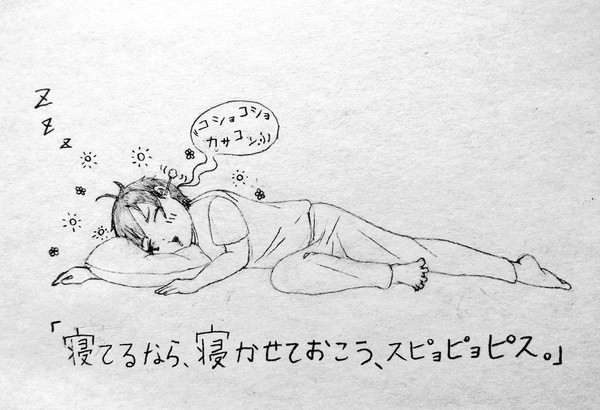 z
z
z
コショコショ
カサコソ
「寝てるなら、寝かせておこう、スピョピョピス。」